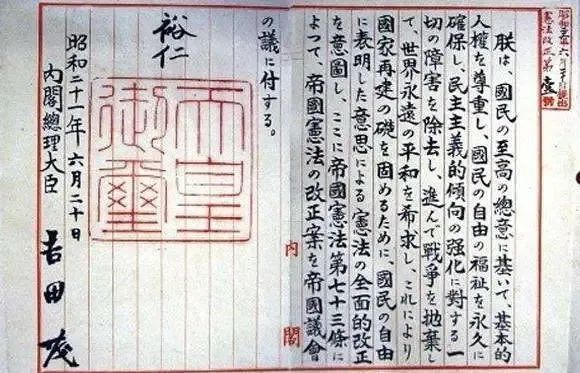 昭和二十一年六月二十日提出
憲法改正第壹號
朕は、國民の至高の總意に基いて、基本的
人權を尊重し、國民の自由の福祉を永久に
確保し、民主主義的傾向の强化に對する一
切の障害を除去し、進んで戰爭を抛棄し
て、世界永遠の平和を希求し、これにより
國家再建の礎を固めるために、國民の自由
に表明した意思による憲法の全面的改正
を意圖し、ここに帝國憲法第七十三條に
よつて、帝國憲法の改正案を帝國議會
の議に付する。
內閣
裕仁
天皇
御璽
昭和二十一年六月二十日
內閣總理大臣
吉田茂